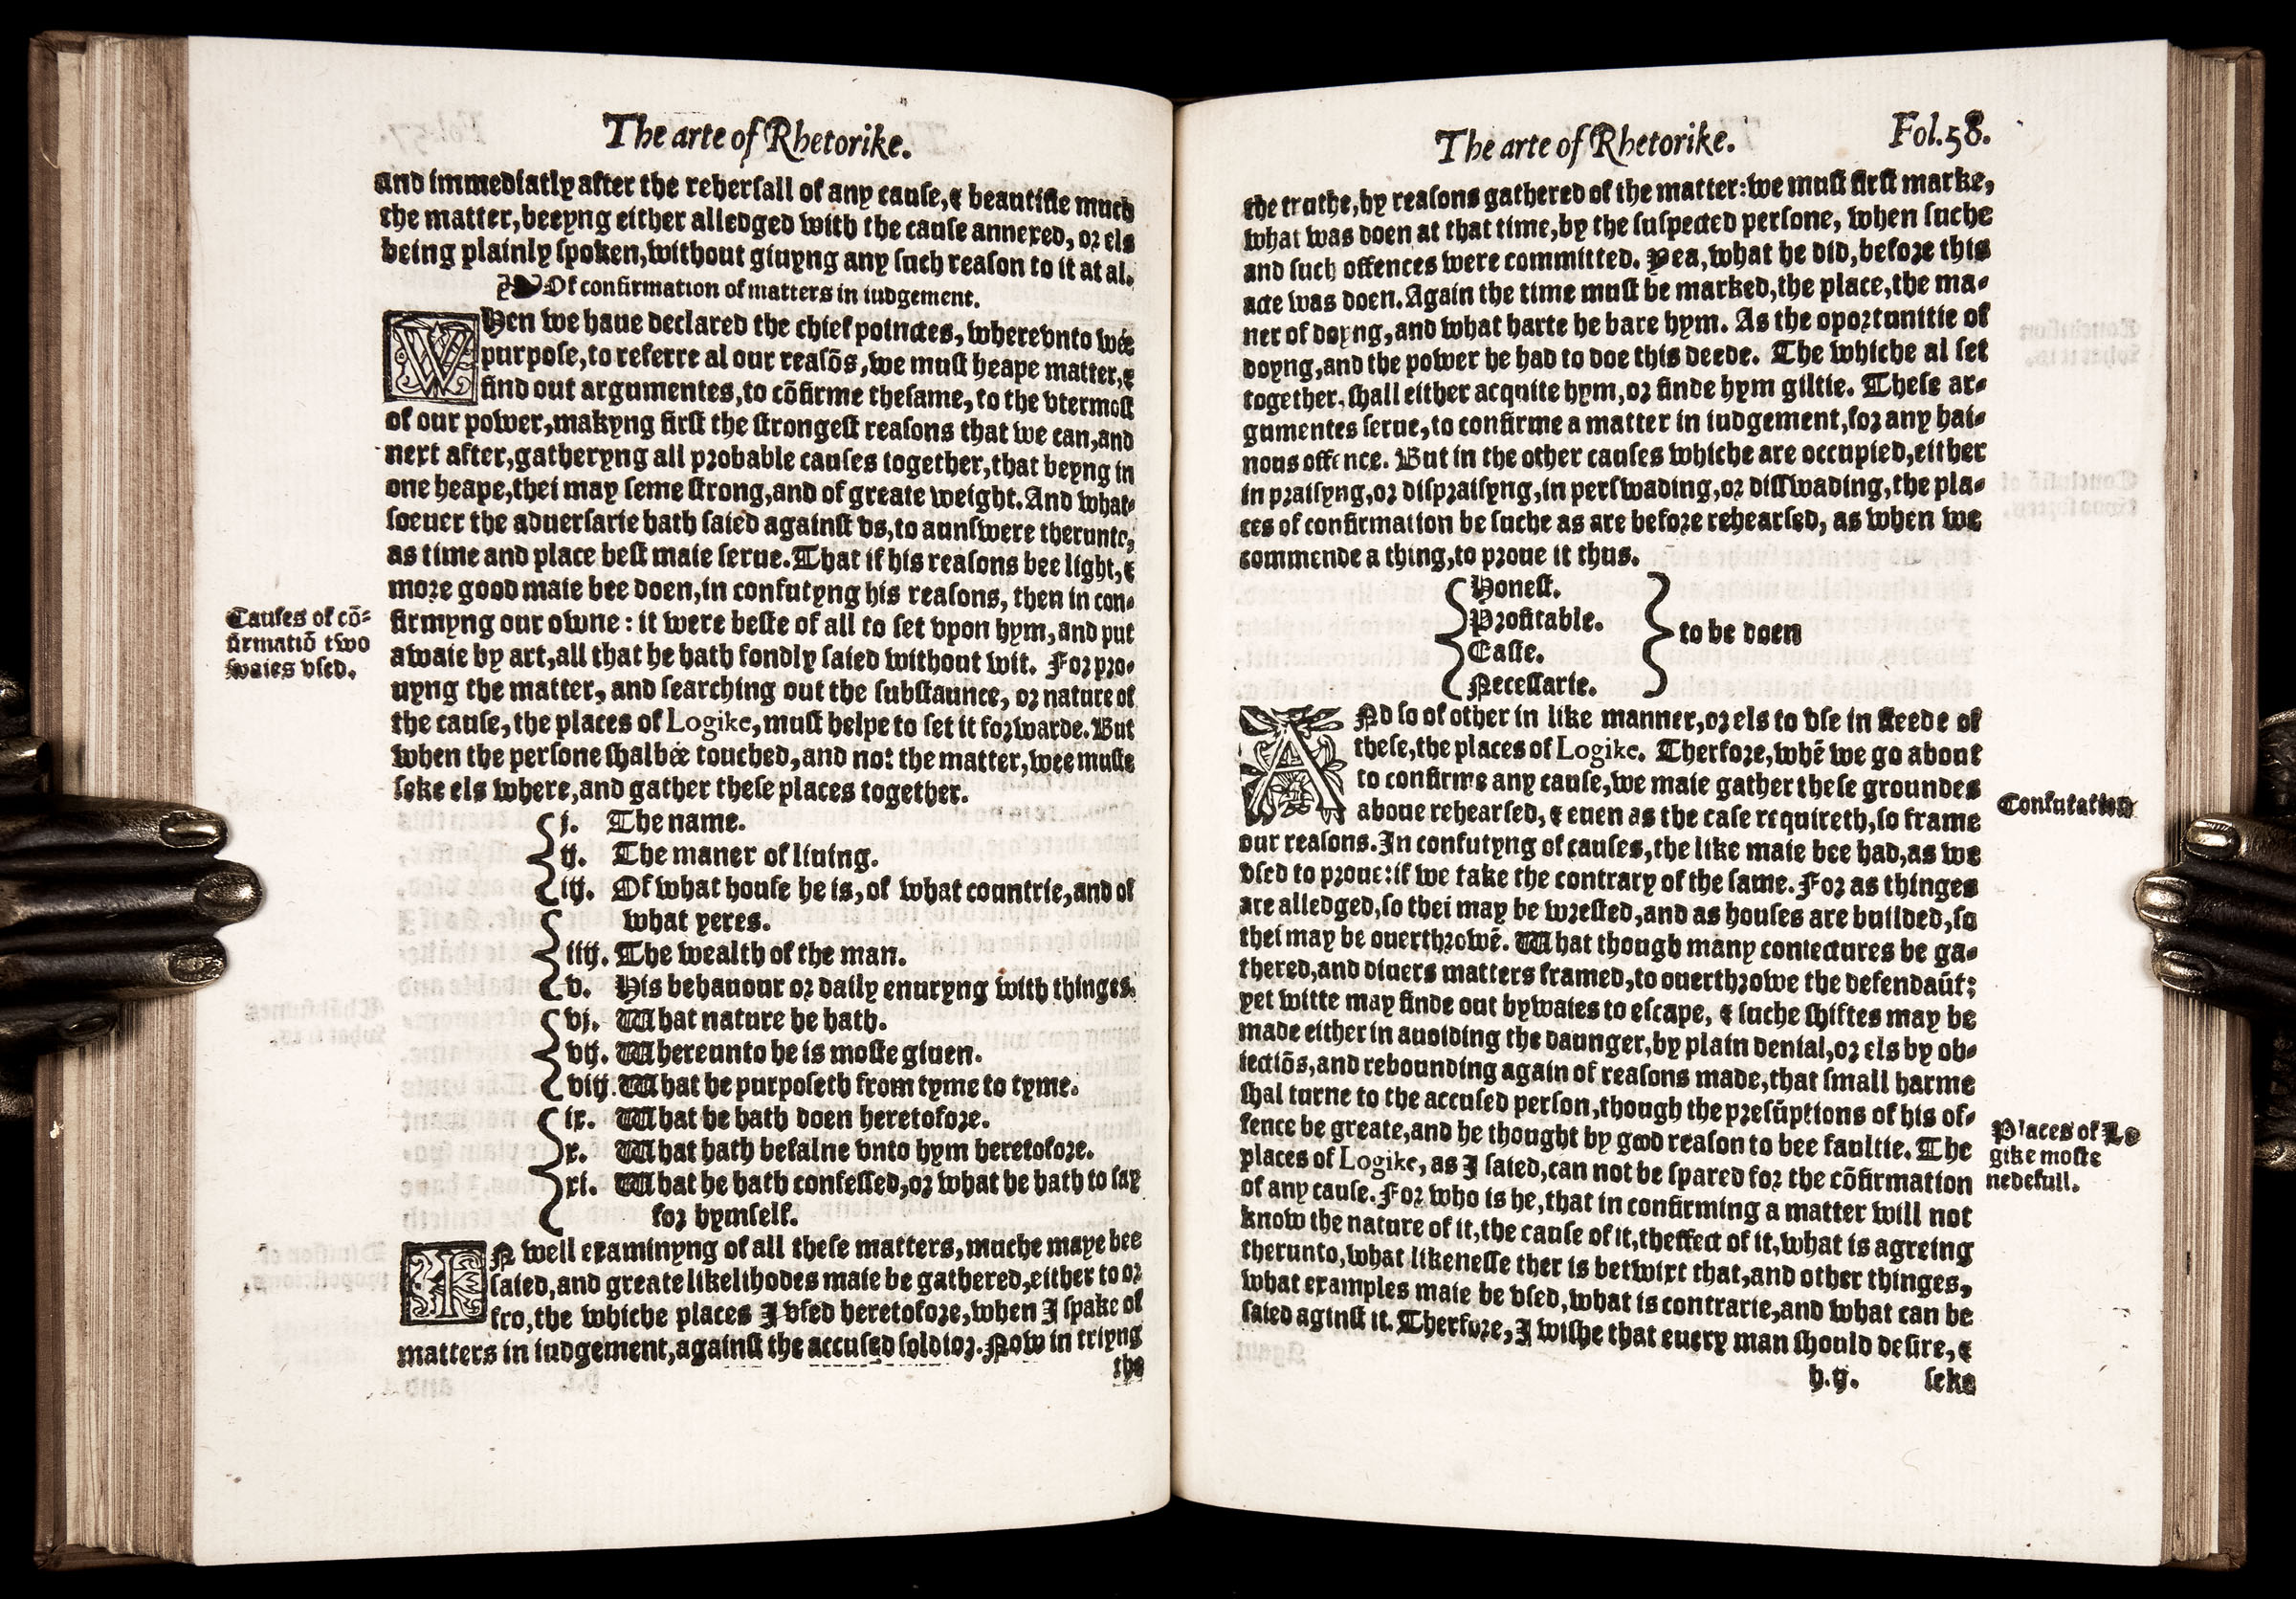 The arte of Rhetorike.
and immediatly after the reherſall of any cauſe, & beautifie much
the matter, beeyng either alledged with the cauſe annexed, or els
being plainly ſpoken, without giuyng any ſuch reaſon to it at al.
Of confirmation of matters in iudgement.
WHen we haue declared the chief poinctes, wherevnto wée
purpoſe, to referre al our reaſõs, we muſt heape matter, &
find out argumentes, to cõfirme theſame, to the vtermoſt
of our power, makyng firſt the ſtrongeſt reaſons that we can, and
next after, gatheryng all probable cauſes together, that beyng in
one heape, thei may ſeme ſtrong, and of greate weight. And what-
ſoeuer the aduerſarie hath ſaied againſt vs, to aunſwere therunto,
as time and place beſt maie ſerue. That if his reaſons bee light, &
more good maie bee doen, in confutyng his reaſons, then in con-
Cauſes of cõ-
firmatiõ two
waies vſed.
firmyng our owne: it were beſte of all to ſet vpon hym, and put
awaie by art, all that he hath fondly ſaied without wit. For pro-
uyng the matter, and ſearching out the ſubſtaunce, or nature of
the cauſe, the places of Logike, muſt helpe to ſet it forwarde. But
when the perſone ſhalbée touched, and not the matter, wee muſte
ſeke els where, and gather theſe places together.
j. The name.
ij. The maner of liuing.
iij. Of what houſe he is, of what countrie, and of
what yeres.
iiij. The wealth of the man.
v. His behauour or daily enuryng with thinges.
vj. What nature he hath.
vij. Whereunto he is moſte giuen.
viij. What he purpoſeth from tyme to tyme.
ix. What he hath doen heretofore.
x. What hath befalne vnto hym heretofore.
xi. What he hath confeſſed, or what he hath to ſay
for hymſelf.
IN well examinyng of all theſe matters, muche maye bee
ſaied, and greate likelihodes maie be gathered, either to or
fro, the whiche places I vſed heretofore, when I ſpake of
matters in iudgement, againſt the accuſed ſoldior. Now in triyng
the
The arte of Rhetorike. Fol. 58.
the truthe, by reaſons gathered of the matter: we muſt firſt marke,
what was doen at that time, by the ſuſpected perſone, when ſuche
and ſuch offences were committed. Yea, what he did, before this
acte was doen. Again the time muſt be marked, the place, the ma-
ner of doyng, and what harte he bare hym. As the oportunitie of
doyng, and the power he had to doe this deede. The whiche al ſet
together, ſhall either acquite hym, or finde hym giltie. Theſe ar-
gumentes ſerue, to confirme a matter in iudgement, for any hai-
nous offence. But in the other cauſes whiche are occupied, either
in praiſyng, or diſpraiſyng, in perſwading, or diſſwading, the pla-
ces of confirmation be ſuche as are before rehearſed, as when we
commende a thing, to proue it thus.
Honeſt.
Profitable.
Eaſie.
Neceſſarie.
to be doen
ANd ſo of other in like manner, or els to vſe in ſteede of
theſe, the places of Logike. Therfore, whẽ we go about
to confirme any cauſe, we maie gather theſe groundes
Confutation
aboue rehearſed, & euen as the caſe requireth, ſo frame
our reaſons. In confutyng of cauſes, the like maie bee had, as we
vſed to proue: if we take the contrary of the ſame. For as thinges
are alledged, ſo thei may be wreſted, and as houſes are builded, ſo
thei may be ouerthrowẽ. What though many coniectures be ga-
thered, and diuers matters framed, to ouerthrowe the defendaũt:
yet witte may finde out bywaies to eſcape, & ſuche ſhiftes may be
made either in auoiding the daunger, by plain denial, or els by ob-
iectiõs, and rebounding again of reaſons made, that ſmall harme
ſhal turne to the accuſed perſon, though the preſũptions of his of-
fence be greate, and he thought by good reaſon to bee faultie. The
Places of Lo
gike moſte
nedefull.
places of Logike, as I ſaied, can not be ſpared for the cõfirmation
of any cauſe. For who is he, that in confirming a matter will not
know the nature of it, the cauſe of it, theffect of it, what is agreing
therunto, what likeneſſe ther is betwixt that, and other thinges,
what examples maie be vſed, what is contrarie, and what can be
ſaied aginſt it. Therfore, I wiſhe that euery man ſhould deſire, &
h.ij. ſeke